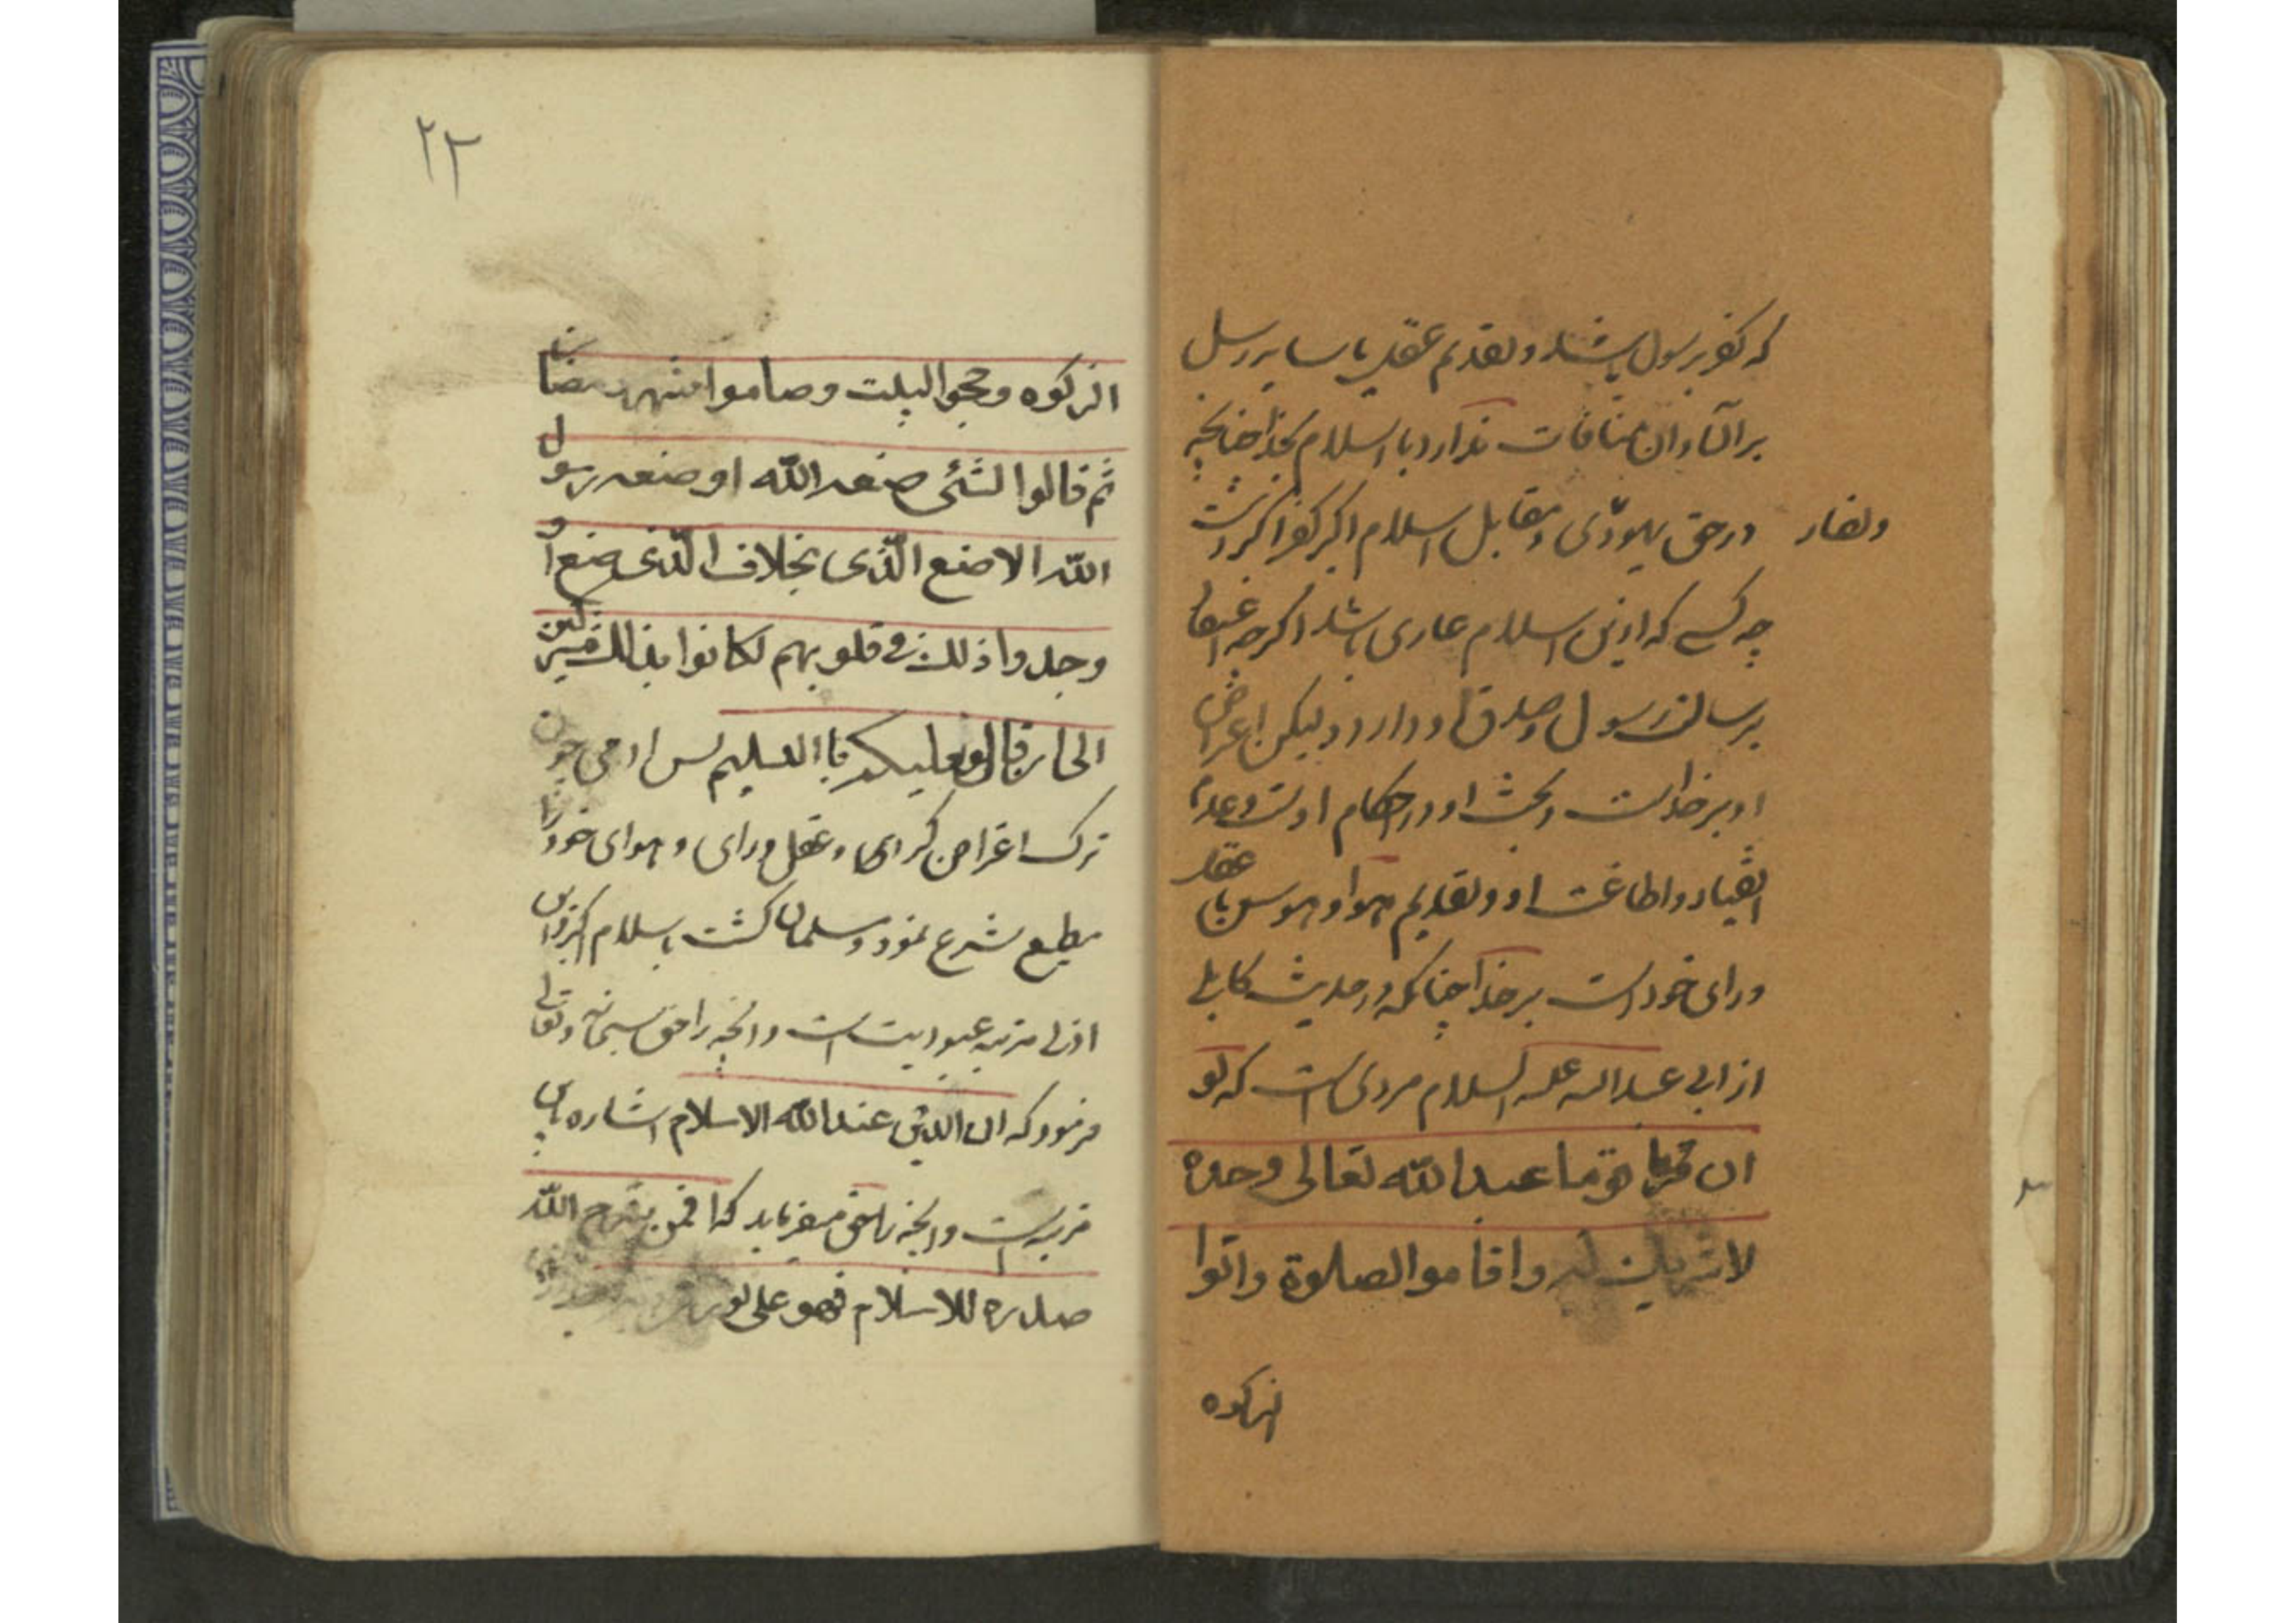 که کفر برسول باشد و تقدیم عقد با سایر رسل
بر آن و ان منافات ندارد با اسلام بخدا چنانچه
در حق یهودی و مقابل اسلام اکبر کفر اکبرست
ونصار
چه کسی که ازین اسلام عاری باشد اکرچه اعتقاد
برسالت رسول و صدق او دارد ولیکن اعراض
او بر خداست و بحث او در احکام اوست و عدم
انقیاد و اطاعت او و تقدیم هوا و هوس یا عقل
و رای خود است بر خدا چنانکه در حدیث کاهلی
از ابی عبد الله علیه السلام مروی است که لو
ان قوما عبدا لله تعالی وحده
لا شریک له واقاموا الصلوة واتوا
الزکوه
۲۲
الزکوه وحجوا البیت وصاموا شهر رمضان
ثم قالوا لشئی صنعه الله او صنعه رسول
الله الا صنع الّذی بخلاف الّذی صنع او
وجدوا ذلک فی قلوبهم لکانوا بذلک مشرکین
الی ان قال وعلیکم با التسلیم پس ادمی چون
ترک اعراض کرده و عقل و رای و هوای خود را
مطیع شرع نمود و مسلمان کشت باسلام اکبر و این
اول مرتبه عبودیت است وانچه را حق سبحانه وتعالی
فرمود که ان الدین عند الله الاسلام اشاره باین
مرتبه است وانچه نیز میفرماید که افمن شرح الله
صدره للاسلام فهو علی نور